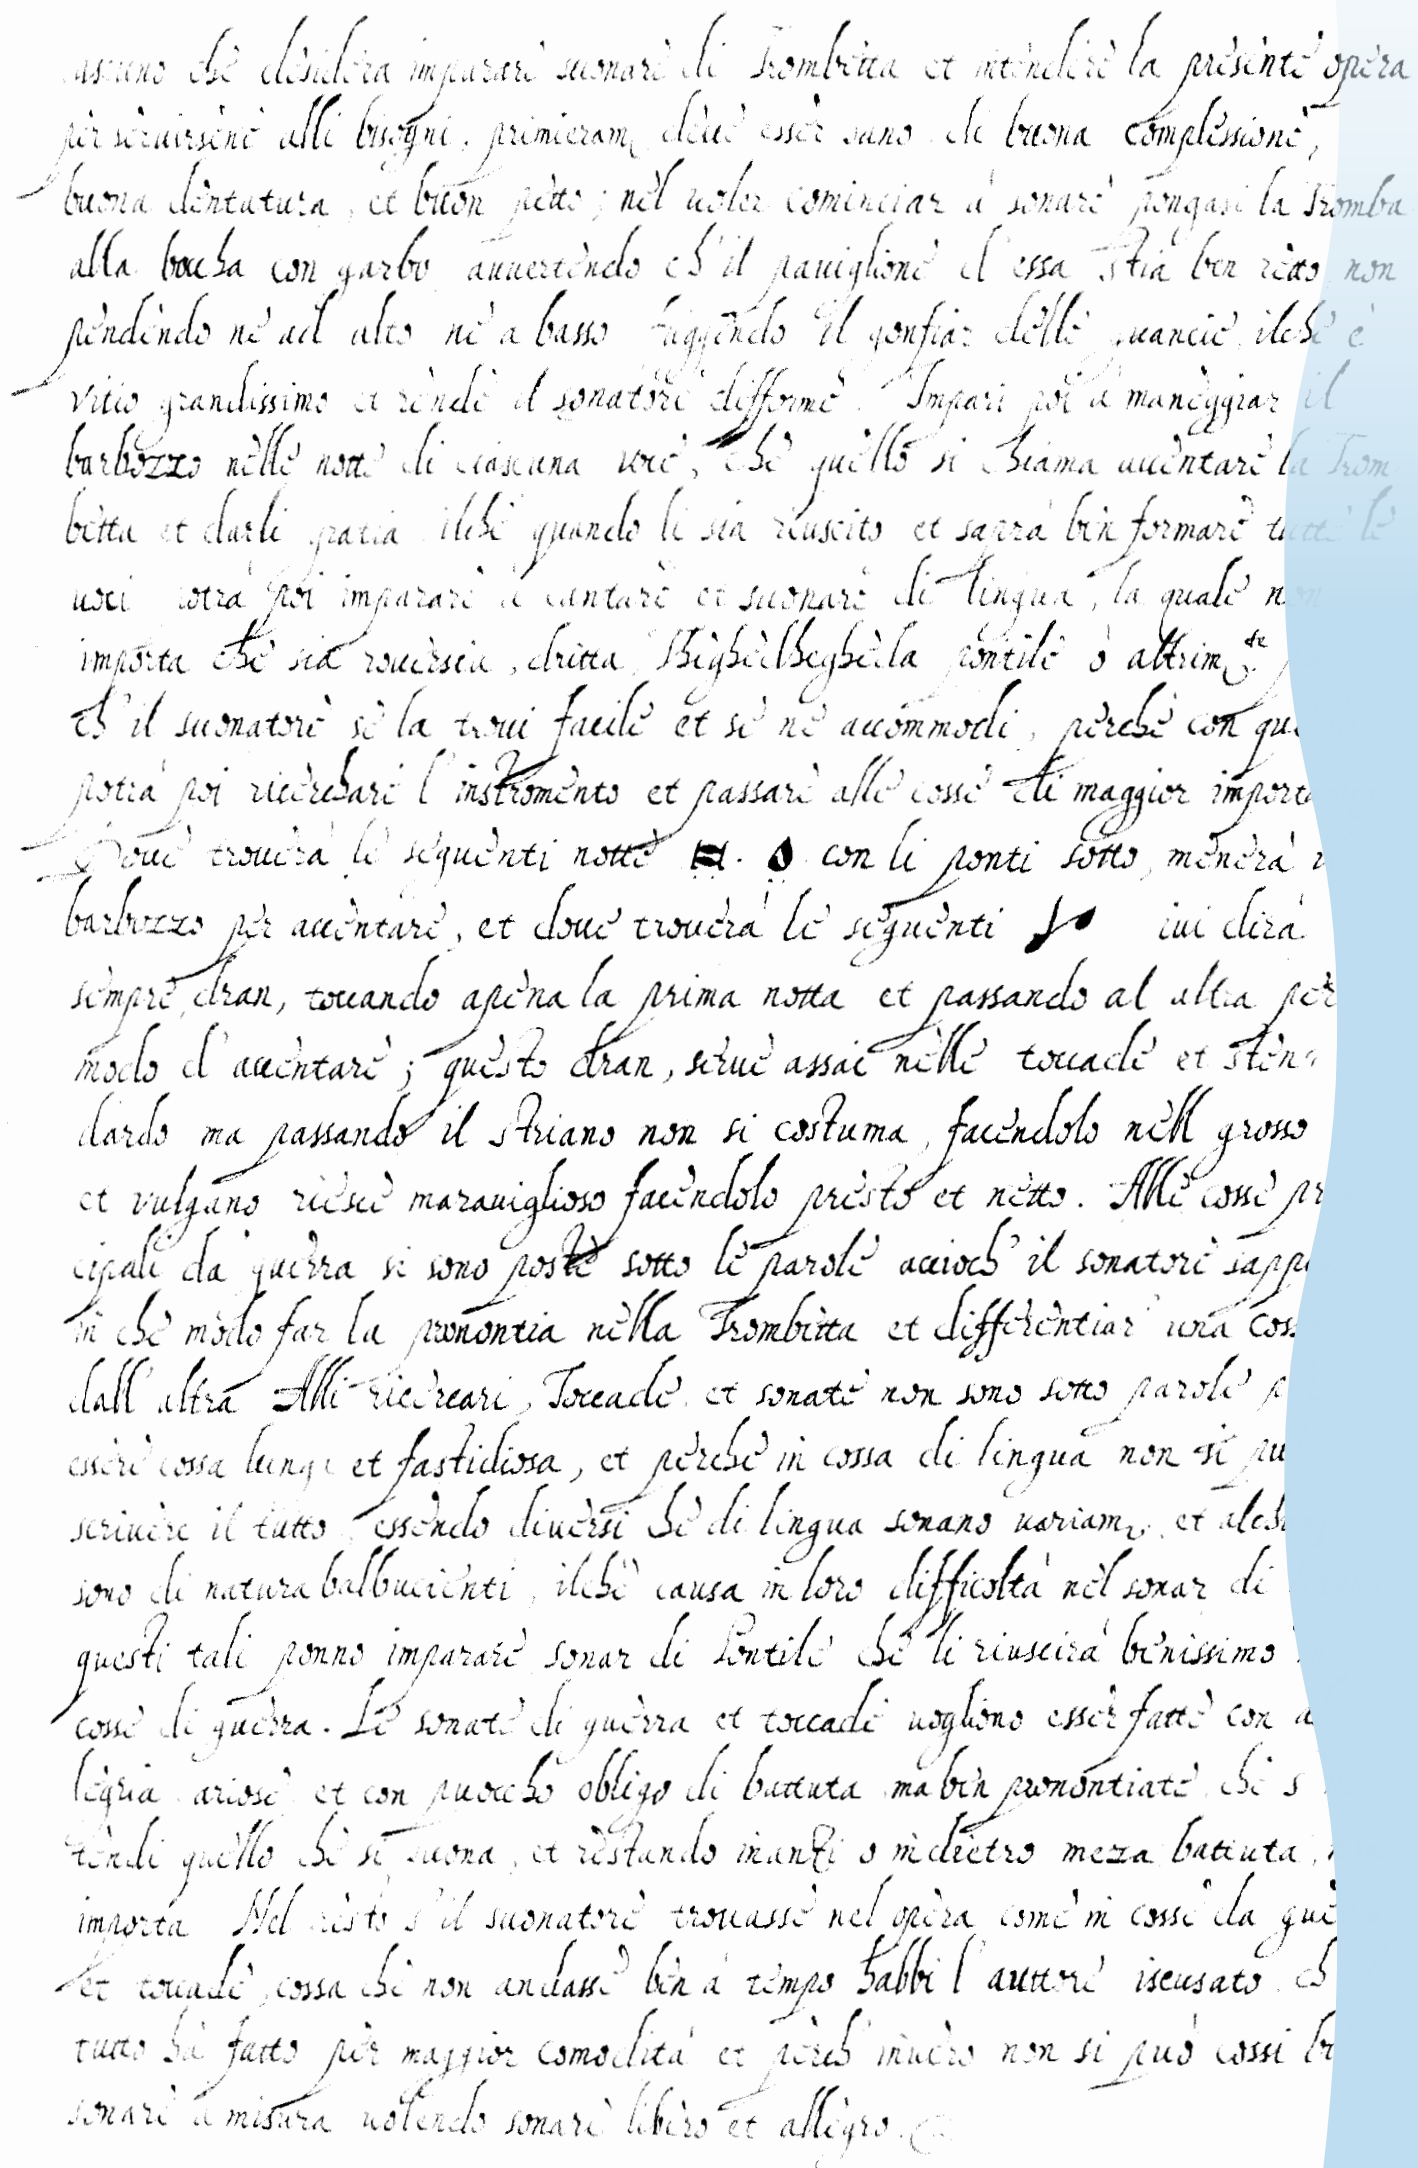 ascuno chè dèsidèra impararè suonarè di Trombètta et intèndèrè la prèsèntè opèra
pèr sèruirsènè alli bisogni, primieram. dèuè essèr sano di buona complèssionè,
buona dèntatura, et buon pètto; nèl uoler cominciar à sonarè pongasi la Tromba
alla boccha con garbo auuertèndo ch'il pauiglionè d'essa stia ben rètto non
pèndèndo nè ad alto nè a basso fuggèndo il gonfiar dèllè guancie, ilchè è
vitio grandissimo et rèndè il sonatorè difformè. Impari poi à manèggiar il
barbozzo nèllè nottè di ciascuna uocè, chè quèllo si chiama accèntarè la Trom
bètta et darli gratia ilchè quando li sia riuscito et saprà bèn formarè tuttè lè
uoci potrà poi impararè à cantarè et suonarè di lingua, la qualè non
importa chè sia rouèrscia, dritta, thèghèdhèghèda pontilè ò altrim.te
ch'il suonatorè sè la troui facilè et sè nè accommodi, pèrchè con qu
potrà poi ricèrcharè l'instromènto et passarè allè cossè di maggior import
Douè trouèrà lè sèguènti nottè con li ponti sotto, mènèrà
barbozzo pèr accèntarè, et douè trouèrà lè sèguènti iui dirà
sèmprè dran, toccando apèna la prima notta et passando al altra pèr
modo d'accèntarè; quèsto dran, sèruè assai nèllè toccadè et stèn
dardo ma passando il striano non si costuma, facèndolo nèll grosso
et vulgano rièscè marauiglioso facèndolo prèsto et nètto. Allè cossè pr
cipali da guèrra si sono postè sotto lè parolè accioch' il sonatorè sapp
in chè modo far la pronontia nèlla Trombètta et diffèrèntiar una coss
dall'altra Alli ricèrcari, Toccadè et sonatè non sono sotto parolè p
essèrè cossa lunga et fastidiosa, et pèrchè in cossa di lingua non si pu
scriuèrè il tutto, essèndo diuèrsi chè di lingua sonano uariam., et alch
sono di natura balbucienti, ilchè causa in loro difficoltà nèl sonar di
questi tali ponno impararè sonar di Pontilè chè li riuscirà bènissimo
cossè di guèrra. Lè sonatè di guèrra et toccadè uogliono essèr fattè con a
lègria ariosè et con puocho obligo di battuta ma bèn pronontiatè chè s
tèndi quèllo chè si suona, et rèstando inanti o indietro meza battuta,
importa Nel rèsto s'il suonatorè trouassè nel opèra comè in cossè da guè
et toccadè, cossa chè non andassè bèn à tèmpo habbi l'auttorè iscusato ch
tutto hà fatto pèr maggior comodità et pèrch' inuèro non si può cossi b
sonarè à misura uolèndo sonarè libèro et allègro.